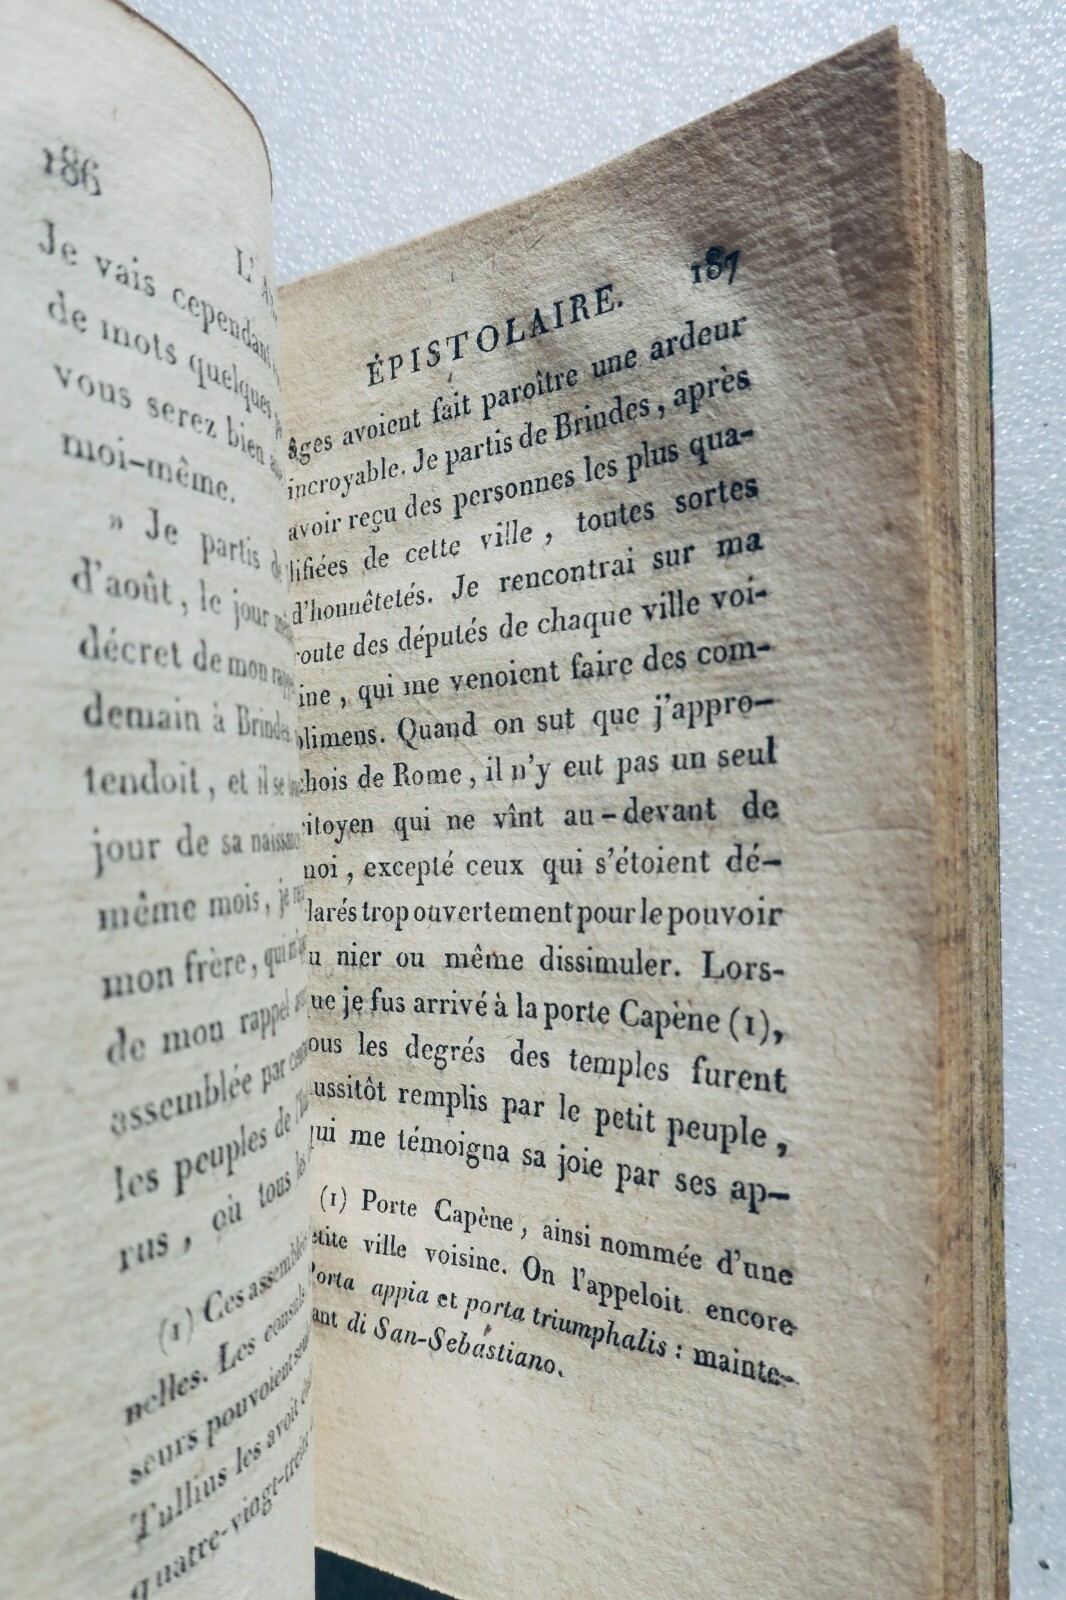 186
L'A
Je vais cependant
de mots quelques
vous serez bien
moi-même.
» Je partis
d'août, le jour
décret de mon
demain à Brindes
tendoit, et il se
jour de sa naissance
même mois, je
mon frère, qui
de mon rappel
assemblée par
les peuples de
rus, où tous
(1) Ces assemblées
nelles. Les consuls
seurs pouvoient
Tullius les avoit
quatre-vingt-treize
ÉPISTOLAIRE. 187
âges avoient fait paroître une ardeur
incroyable. Je partis de Brindes, après
avoir reçu des personnes les plus qua-
lifiées de cette ville, toutes sortes
d'honnêtetés. Je rencontrai sur ma
route des députés de chaque ville voi-
ine, qui me venoient faire des com-
plimens. Quand on sut que j'appro-
chois de Rome, il n'y eut pas un seul
citoyen qui ne vînt au-devant de
moi, excepté ceux qui s'étoient dé-
larés trop ouvertement pour le pouvoir
u nier ou même dissimuler. Lors-
ue je fus arrivé à la porte Capène (1),
ous les degrés des temples furent
ussitôt remplis par le petit peuple,
qui me témoigna sa joie par ses ap-
(1) Porte Capène, ainsi nommée d'une
etite ville voisine. On l'appeloit encore
Porta appia et porta triumphalis : mainte-
ant di San-Sebastiano.